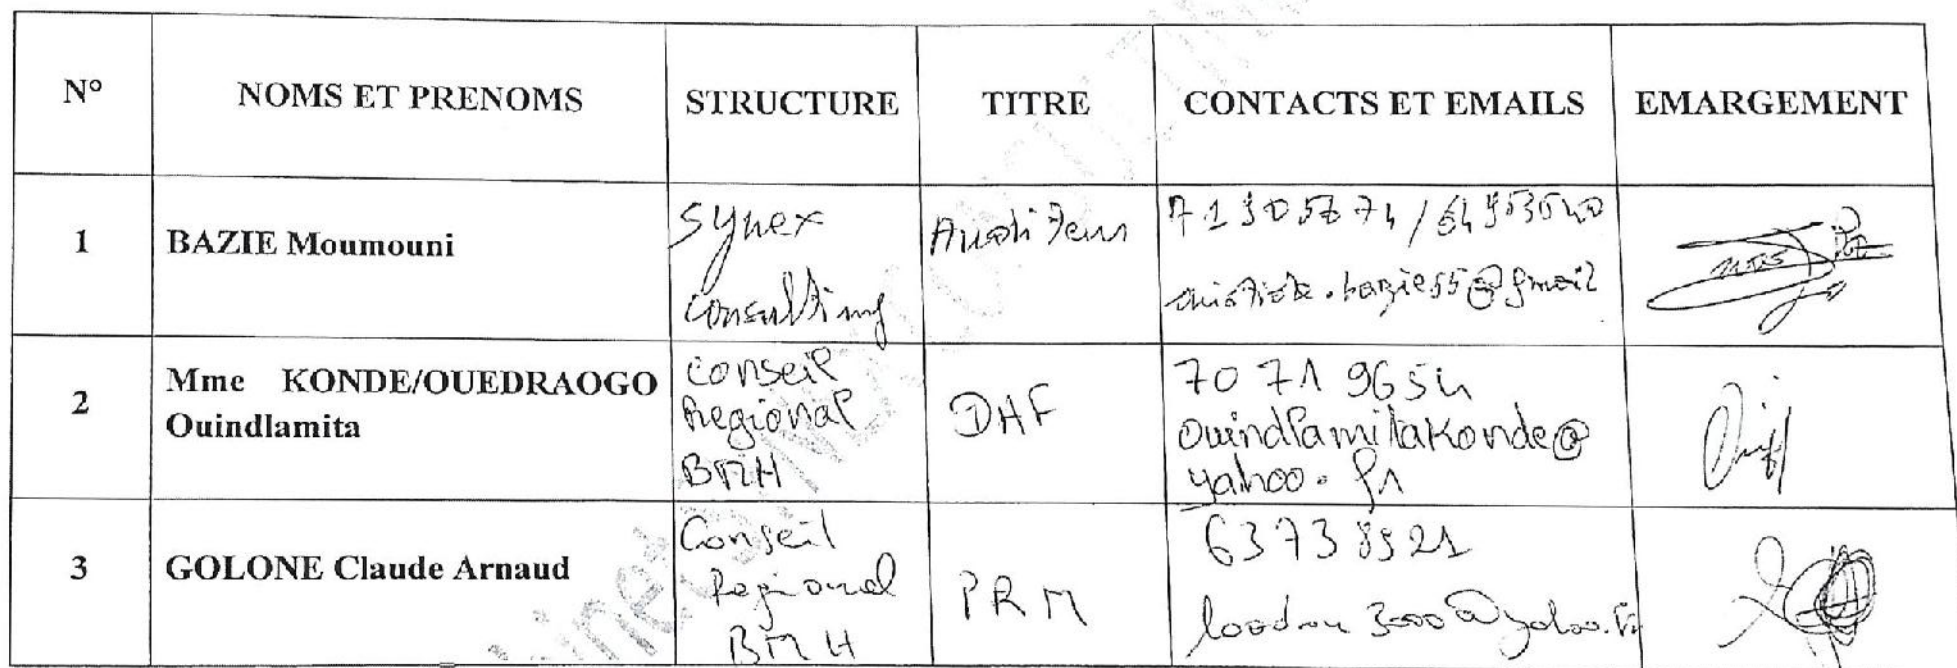 N° NOMS ET PRENOMS STRUCTURE TITRE CONTACTS ET EMAILS EMARGEMENT
1 BAZIE Moumouni Synex Consulting Auditeur
2 Mme KONDE/OUEDRAOGO Ouindlamita Conseil Regional BMH DAF 70 71 96 54 Ouindlamitakonde@yahoo.fr
3 GOLONE Claude Arnaud Conseil Regional BMH PRM 63738921